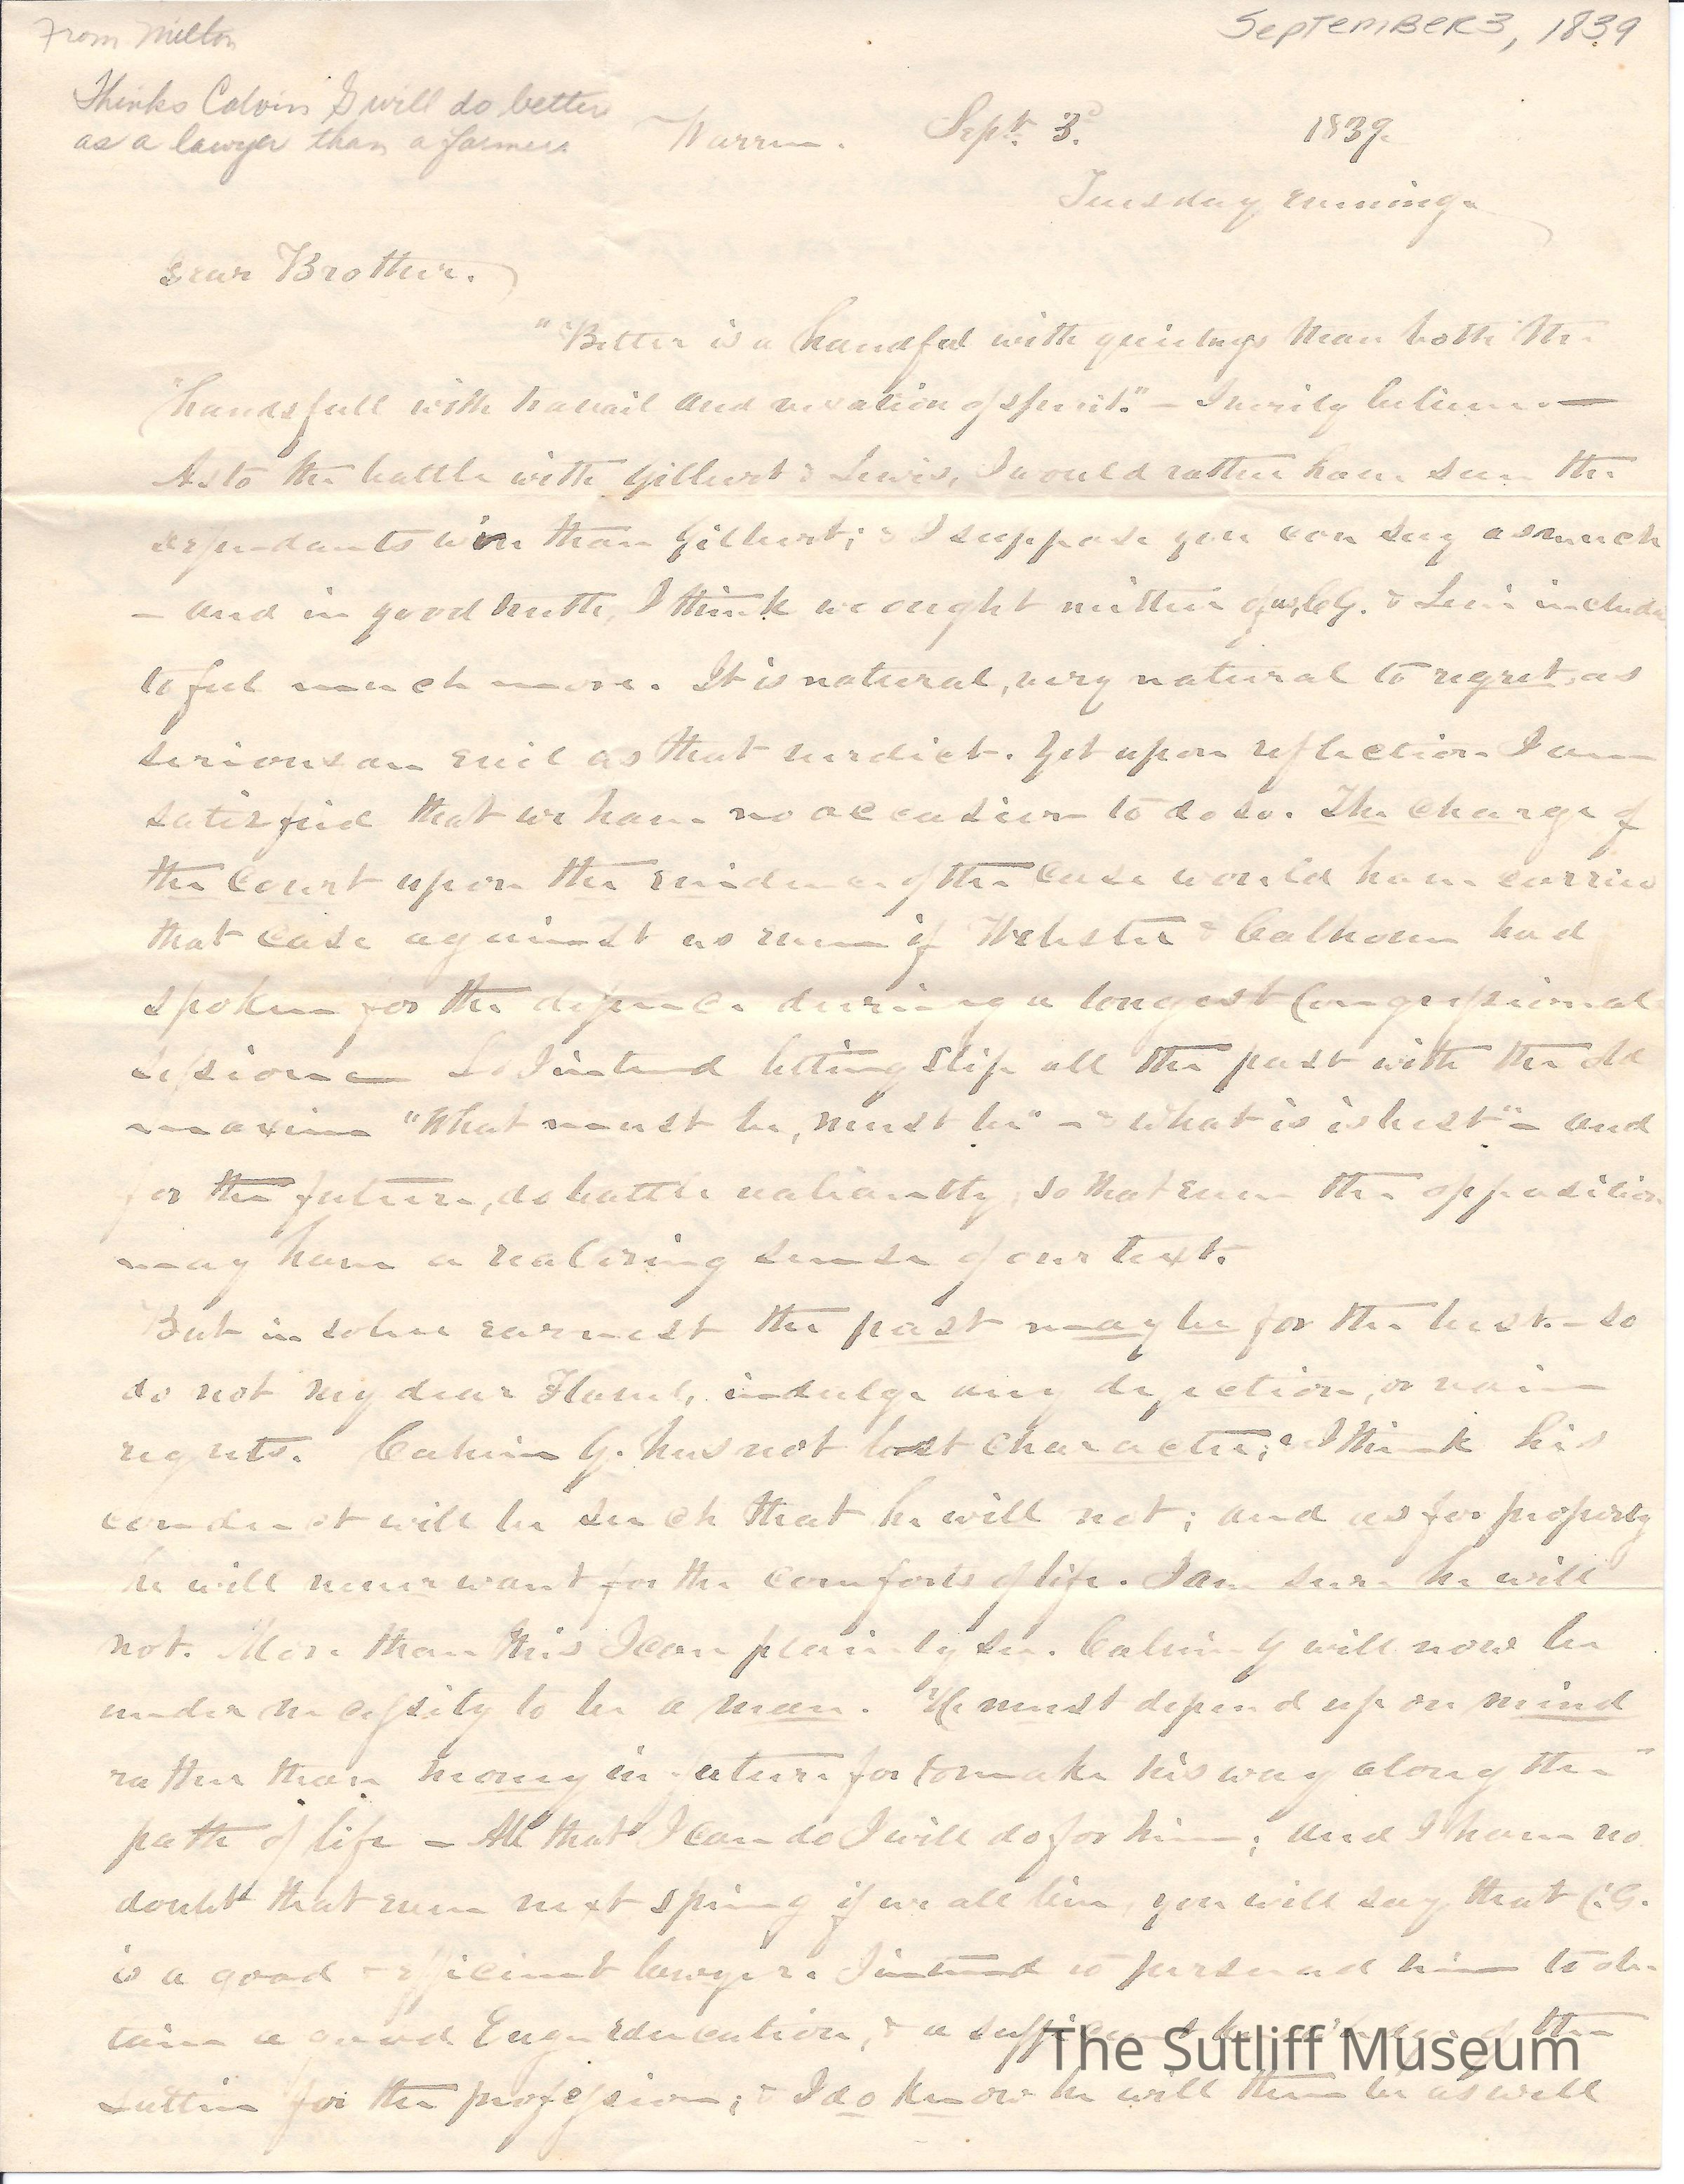 From Milton
September 3, 1839
Thinks Calvin G will do better
as a lawyer than a farmer.
Warren. Sept. 3d. 1839.
Tuesday evening.
Dear Brother.
"Better is a handful with quietness than both the
"hands full with travail and vexation of spirit." – I verily believe. —
As to the battle with Gilbert & Lewis, I would rather have been the
defendants than Gilbert; & I suppose you can say as much
– and in good truth, I think we ought neither of us, C G. & Levi included
to feel much more. It is natural, very natural to regret, as
serious an evil as that verdict. Yet upon reflection I am
satisfied that we have no occasion to do so. The charge of
the Court upon the evidence of the case would have carried
that case against us even if Webster & Calhoun had
spoken for the defence during a longest Congressional
session So I intend letting slip all the past with the old
maxim "What must be, must be" – & what is is best" – and
for the future, do battle valiantly, so that even the opposition
may have a realizing sense of our text.
But in sober earnest the past may be for the best. – so
do not my dear Flavel, indulge any dejection, or vain
regrets. Calvin G. has not lost character; & I think his
conduct will be such that he will not; and as for property
he will never want for the comforts of life. I am sure he will
not. More than this I can plainly see. Calvin G will now be
under necessity to be a man. He must depend upon mind
rather than money in future for to make his way along the
path of life – All that I can do I will do for him; and I have no
doubt that even next spring if we all live, you will say that C. G.
is a good & efficient lawyer. I intend to persuad him to ob-
tain a good Eng. education, & a sufficient knowledge of the
Latin for the profession; & I do know he will then be as well
The Sutliff Museum